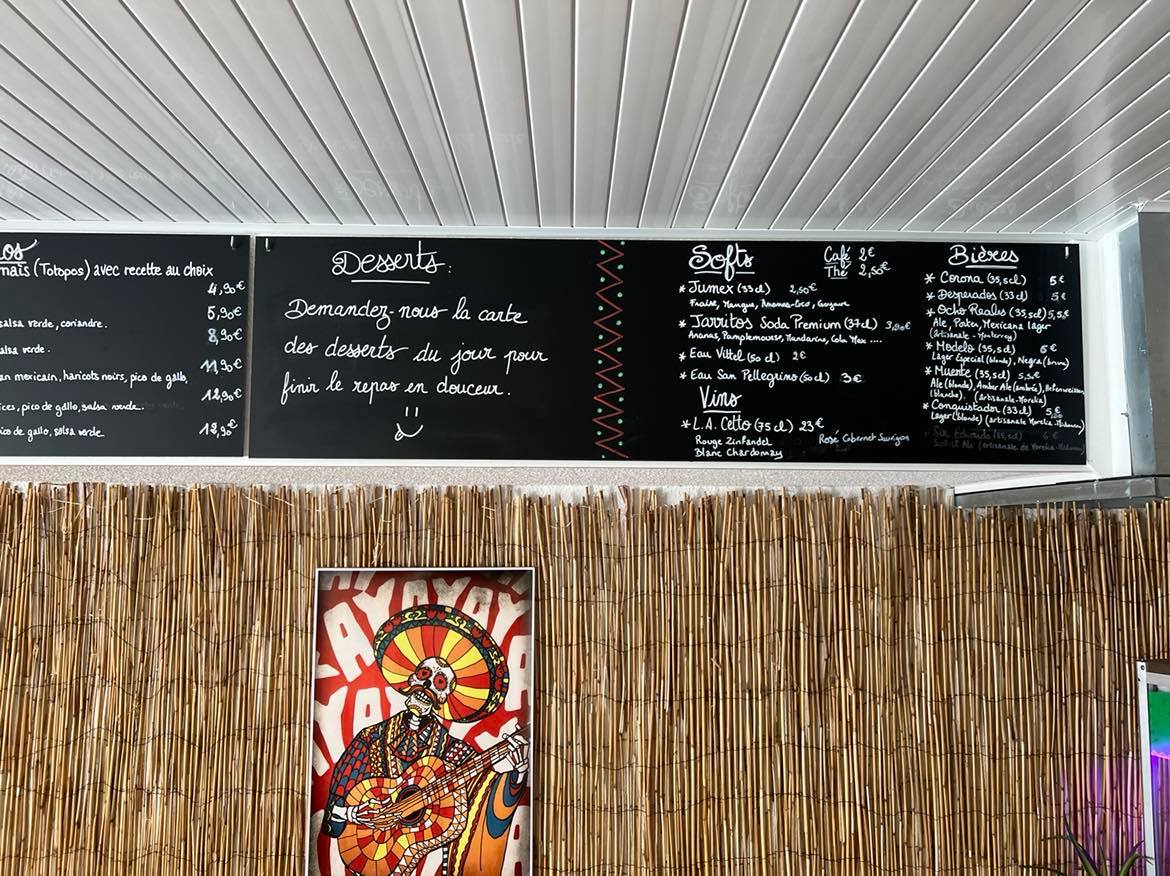 maïs (Totopos) avec recette au choix
4,90€
5,90€
salsa verde, coriandre.
8,90€
salsa verde.
11,90€
an mexicain, haricots noirs, pico de gallo,
12,90€
ices, pico de gallo, salsa verde.
ico de gallo, salsa verde
12,90€
Desserts:
Demandez-nous la carte
des desserts du jour pour
finir le repas en douceur.
Softs
* Jumex (33cl) 2,50€
Fraise, Mangue, Ananas-Coco, Goyave
* Jarritos Soda Premium (37cl) 3,90€
Ananas, Pamplemousse, Mandarine, Cola Mex ....
* Eau Vittel (50cl) 2€
* Eau San Pellegrino (50cl) 3€
Vins
* L.A. Cetto (75cl) 23€
Rouge Zinfandel Rosé Cabernet Sauvignon
Blanc Chardonnay
Café 2€
Thé 2,50€
Bières
* Corona (35,5cl) 5€
* Desperados (33cl) 5€
* Ocho Reales (35,5cl) 5,5€
Ale, Poter, Mexicana lager
(Artisanale - Monterrey)
* Modelo (35,5cl) 5€
Lager Especial (blonde), Negra (brune)
* Muerte (35,5cl) 5,5€
Ale (blonde), Amber Ale (ambrée), Hefenweissen
(blanche). (Artisanale. Morelia)
* Conquistador (33cl) 5€
Lager (blonde) (artisanale Morelia
(35,5cl) 6€
Ale (artisanale de Morelia
AY